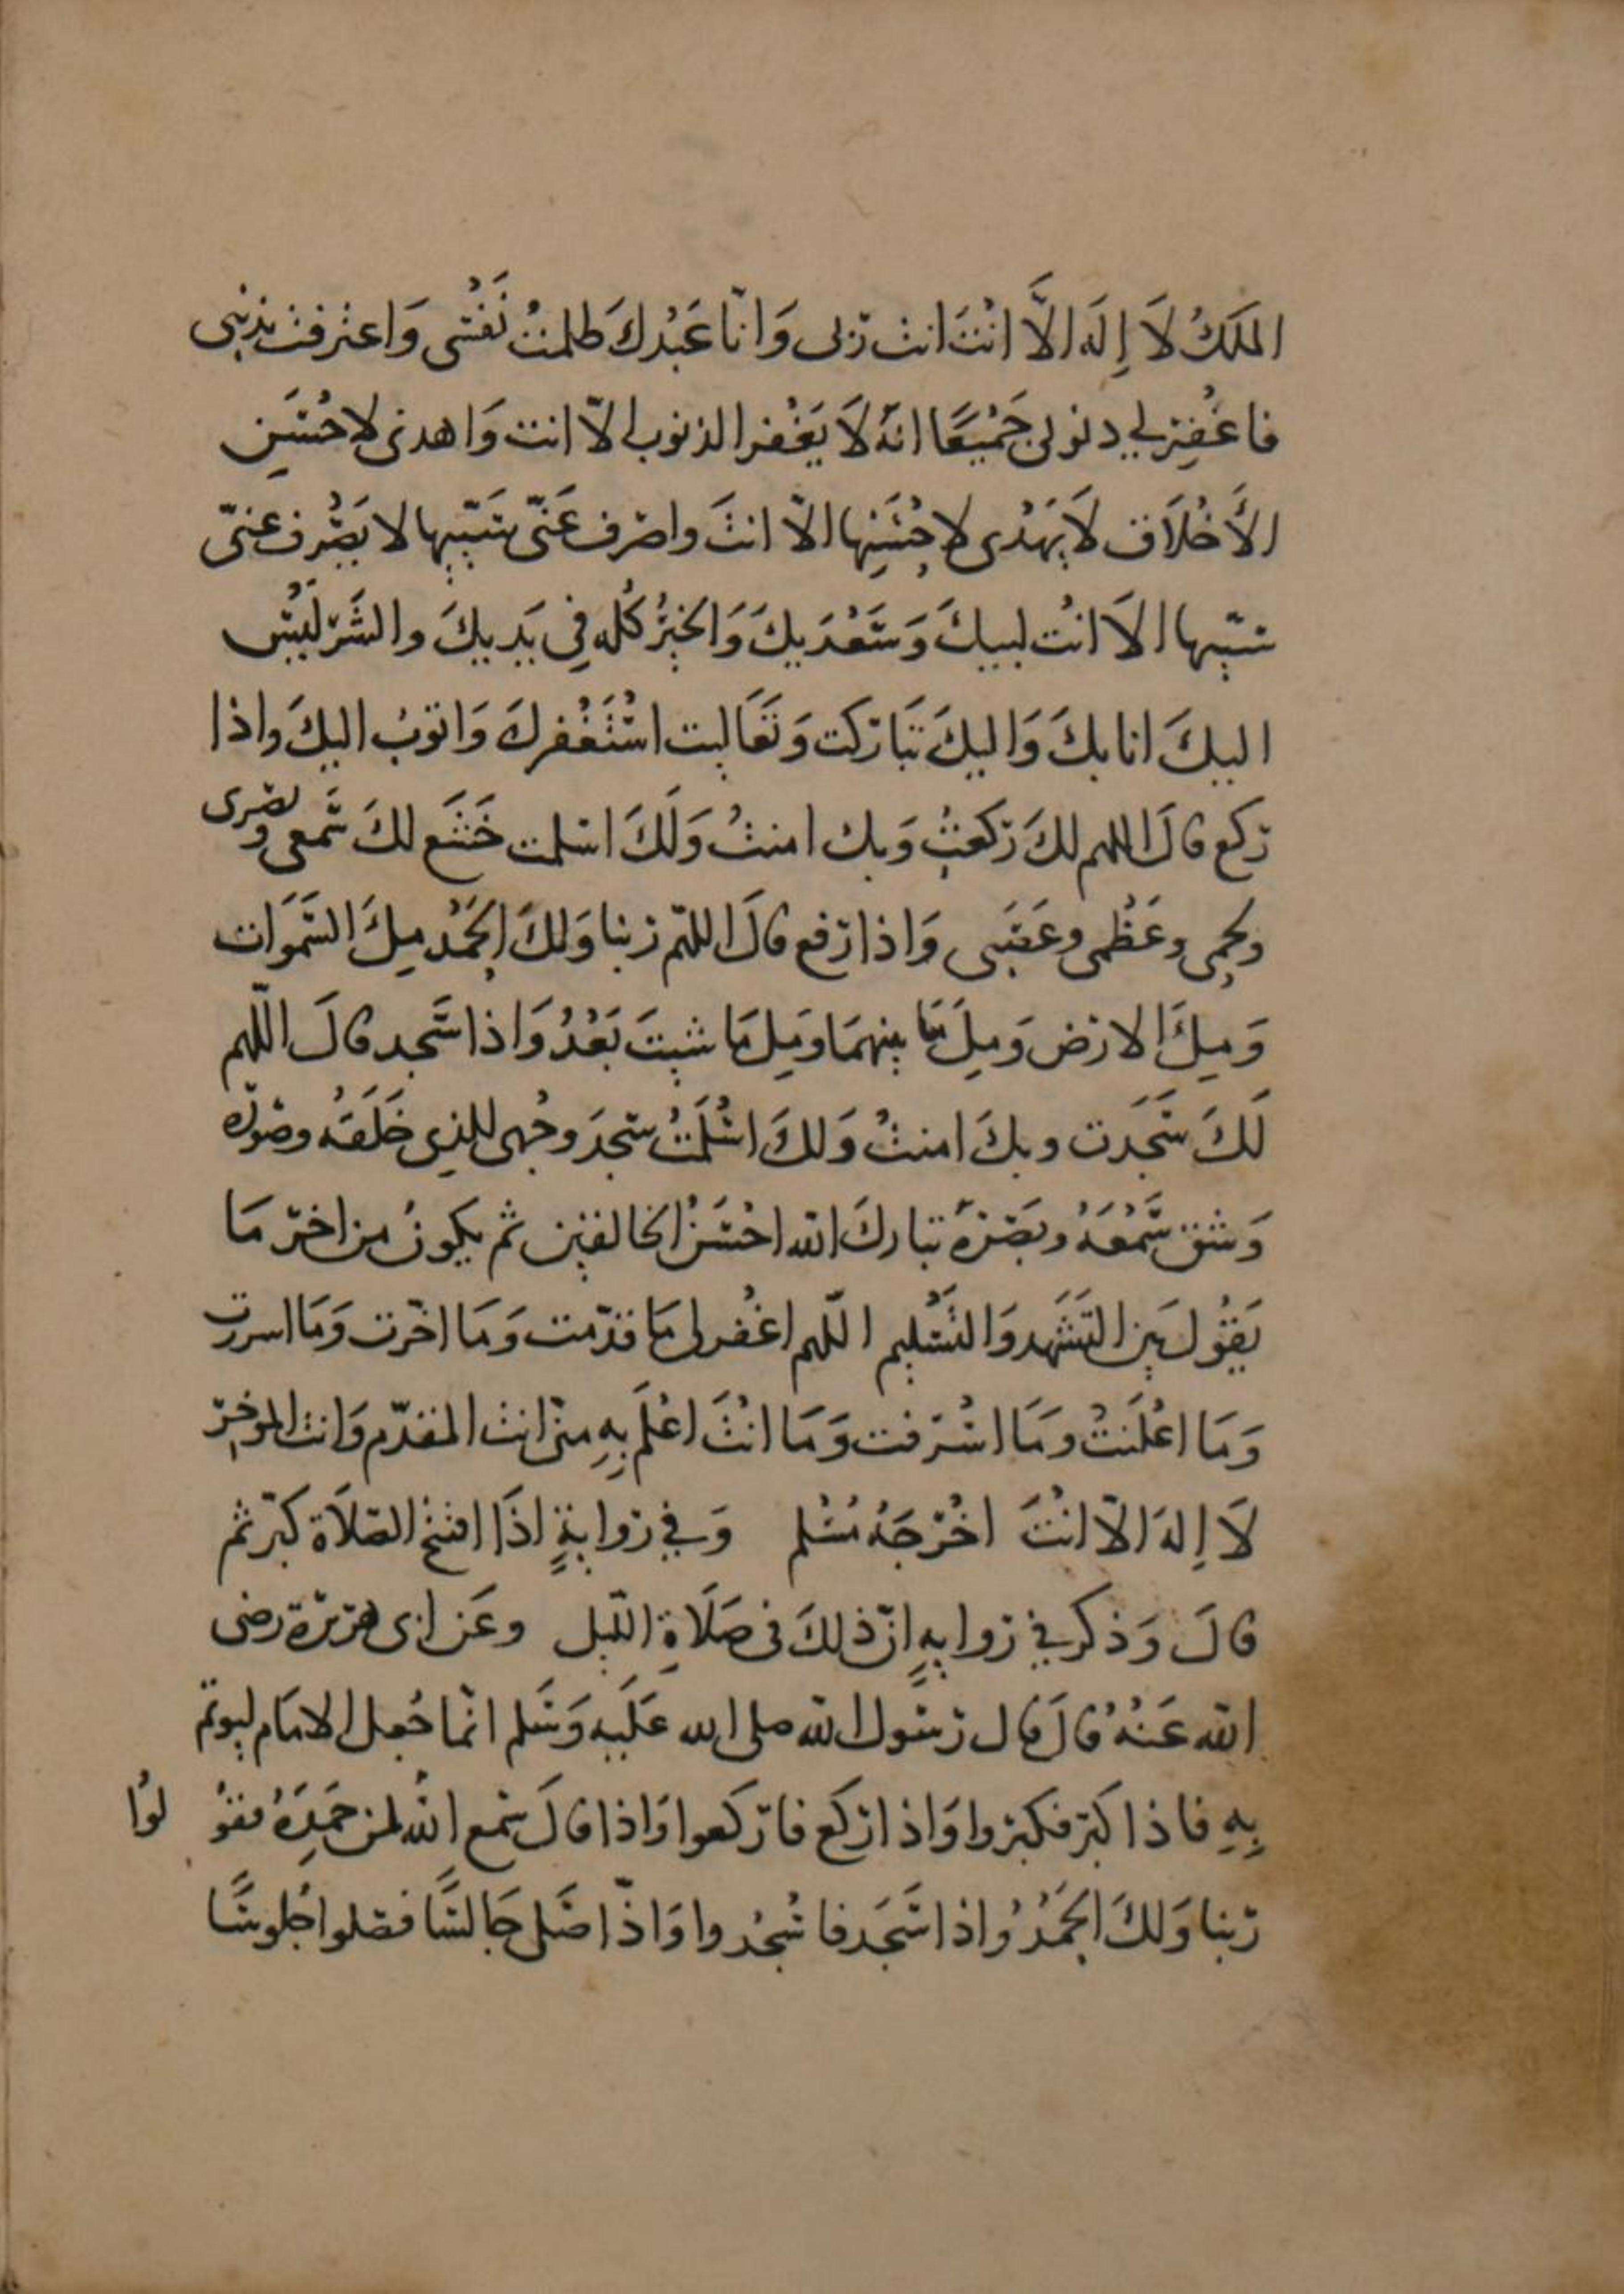 الملكُ لَا إِلَه الَّا انْتَ انت رَبى وَانَا عَبْدكَ ظلمتُ نَفْسى وَاعترفت بذنبى
فاغْفِر لي ذنوبى جَمْيعًا انهُ لَا يَغْفر الذنوب الّا انت وَاهدنى لاحْسَنِ
الأَخْلَاق لَا يَهْدى لاحْسَنِها الّا انتَ واصرف عَنّى سَيّيها لا يَصْرف عنىّ
سيّيها الَا انْت لبيكَ وَسَعْدَيكَ وَالخيرُ كُله فِي يَديكَ والشَرّ لَيْسَ
اليكَ انا بكَ وَاليكَ تَبَاركت وَتَعَاليت اسْتَغْفرك وَاتوبُ اليكَ واذا
ركع قالَ اللهم لكَ ركعتُ وَبك امنتُ وَلَكَ اسلمت خَشَع لكَ سَمعى وبصرى
ومخى وعَظْمى وعَصَبى وَاذا رفع قالَ اللهّم ربنا وَلكَ الحَمْد مِلَ السَمَوَات
وَمِلَ الارض وَمِلَ مَا بينهمَا وَمِل مَا شيتَ بَعْدُ وَاذا سَجد قالَ اللّهم
لَكَ سَجَدت وبكَ امنتُ وَلكَ اسْلَمْتُ سجدَ وجْهى للذِى خَلَقَهُ وصَوره
وَشق سَمْعَهُ وبَصَرهُ تباركَ الله احْسَنُ الخالقين ثم يكونُ من اخر مَا
يَقُول بَين التَشَهد وَالتَسْليم اللّهم اغْفر لى مَا قدّمت وَمَا اخّرت وَمَا اسررت
وَمَا اعْلَنتُ ومَا اسْرَفت وَمَا انْتَ اعْلَم بِهِ منّى انت المقدّم وَانت الموخِرّ
لَا اِلهَ الّا انْتَ اخْرَجَهُ مُسْلم وَفي روايةٍ اذَا افتتح الصلَاة كبّر ثم
قالَ وَذكر في روايةٍ انّ ذلكَ فى صَلَاةِ اللّيل وعَن ابى هريرة رضى
الله عَنْهُ قالَ قال رسول الله صلى الله عَلَيه وَسَلم انّما جُعل الامَام ليوتمّ
بِهِ فاذا كبّر فكبّروا وَاذا ركع فاركعوا وَاذا قالَ سَمع اللهُ لمن حَمِدَهُ فقوْ لوُا
ربّنا وَلكَ الحَمْدُ واذا سَجَد فاسْجُدوا وَاذا صَلى جَالسًا فصلوا جُلوسًا